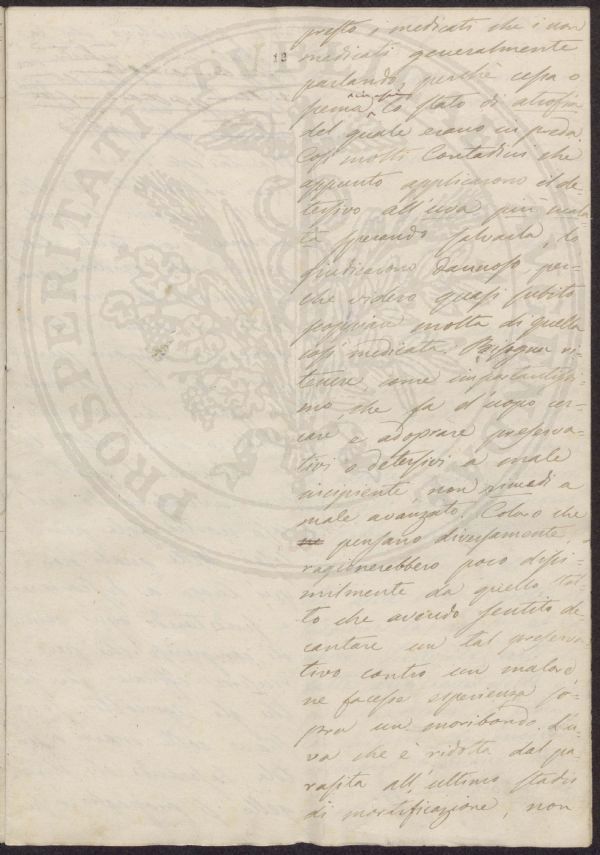 presto i medicati che i non
medicati generalmente
parlando, perchè cessa o
scema lo stato di atrofia
del quale erano in preda.
Così molti Contadini che
appunto applicarono il de-
tersivo all'uva più mala-
ta sperando salvarla, lo
giudicarono dannoso, per-
che videro quasi subito
molta di quella
così medicata. Bisogna ri-
tenere, come importantissi-
mo, che fa d'uopo cer-
care e adoprare preserva-
tivi o detersivi a male
incipiente, non rimedi a
male avanzato. Coloro che
pensano diversamente
ragionerebbero poco dissi-
milmente da quello stol-
to che avendo sentito de-
cantare un tal preserva
tivo contro un malore
ne facesse esperienza so-
pra un moribondo. L'u-
va che è ridotta dal pa-
rasita all'ultimo stadio
di mortificazione, non
19
PROSPERITATI PUBLICAE